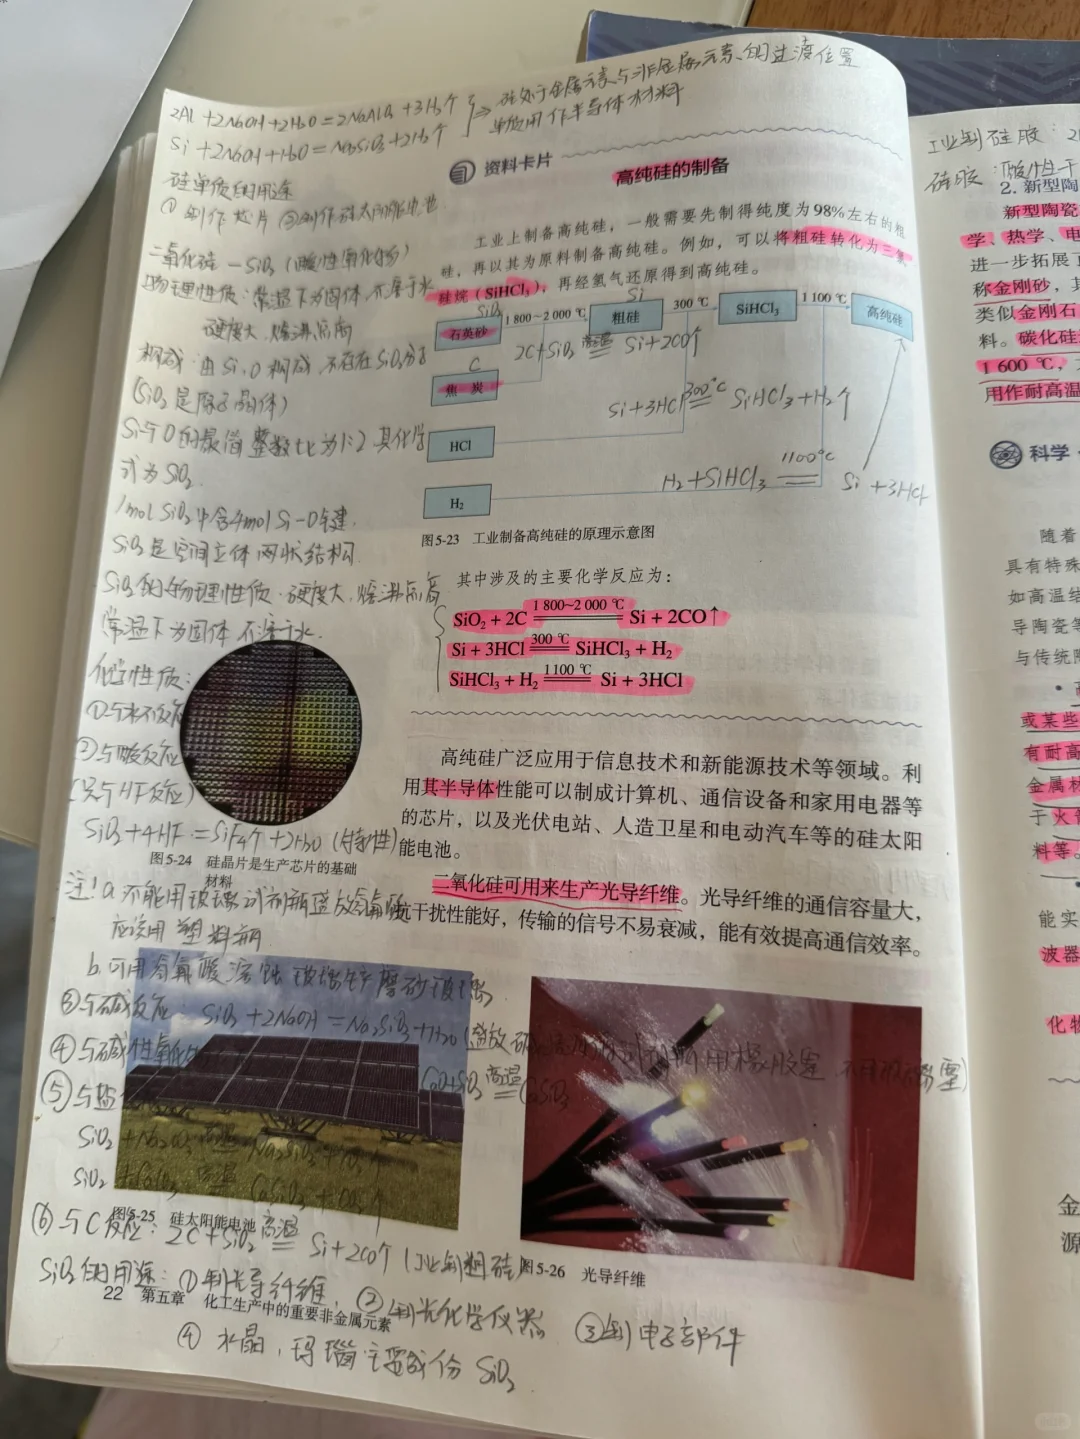 2Al+2NaOH+2H₂O=2NaAlO₂+3H₂↑
Si+2NaOH+H₂O=Na₂SiO₃+2H₂↑
⇒硅处于金属元素与非金属元素的过渡位置
单质用作半导体材料
资料卡片
高纯硅的制备
硅单质的用途
①制作芯片 ②制作硅太阳能电池
工业上制备高纯硅,一般需要先制得纯度为98%左右的粗
硅,再以其为原料制备高纯硅。例如,可以将粗硅转化为三氯
硅烷(SiHCl₃),再经氢气还原得到高纯硅。
二氧化硅—SiO₂(酸性氧化物)
物理性质:常温下为固体 不溶于水
硬度大、熔沸点高
构成:由Si、O构成 不存在SiO₂分子
(SiO₂是原子晶体)
Si与O的最简整数比为1:2 其化学
式为SiO₂.
1mol SiO₂中含4mol Si-O键.
SiO₂是空间立体网状结构.
SiO₂的物理性质:硬度大、熔沸点高
常温下为固体 不溶于水.
SiO₂
石英砂
1 800~2 000 ℃
Si
粗硅
300 ℃
SiHCl₃
1 100 ℃
高纯硅
C
焦炭
2C+SiO₂ 高温 Si+2CO↑
HCl
Si+3HCl 300℃ SiHCl₃+H₂↑
H₂
H₂+SiHCl₃ 1100℃ Si+3HCl
图5-23 工业制备高纯硅的原理示意图
其中涉及的主要化学反应为:
SiO₂+2C 1 800~2 000 ℃ Si+2CO↑
Si+3HCl 300 ℃ SiHCl₃+H₂
SiHCl₃+H₂ 1 100 ℃ Si+3HCl
化学性质:
①与水不反应
②与酸反应
(只与HF反应)
SiO₂+4HF=SiF₄↑+2H₂O(特性)
图5-24 硅晶片是生产芯片的基础
材料
高纯硅广泛应用于信息技术和新能源技术等领域。利
用其半导体性能可以制成计算机、通信设备和家用电器等
的芯片,以及光伏电站、人造卫星和电动汽车等的硅太阳
能电池。
二氧化硅可用来生产光导纤维。光导纤维的通信容量大,
抗干扰性能好,传输的信号不易衰减,能有效提高通信效率。
注! a.不能用玻璃试剂瓶盛放氢氟酸
应该用塑料瓶
b.可用氢氟酸溶蚀玻璃生产磨砂玻璃
③与碱反应:SiO₂+2NaOH=Na₂SiO₃+H₂O(盛放碱溶液的试剂瓶用橡胶塞 不用玻璃塞)
④与碱性氧化物 CaO+SiO₂ 高温 CaSiO₃
⑤与盐
SiO₂+Na₂CO₃ 高温 Na₂SiO₃+CO₂↑
SiO₂+CaCO₃ 高温 CaSiO₃+CO₂↑
图5-25 硅太阳能电池
⑥与C反应:2C+SiO₂ 高温 Si+2CO↑(工业制粗硅)
图5-26 光导纤维
SiO₂的用途:①制光导纤维、②制光化学仪器 ③制电子部件
④水晶、玛瑙主要成份SiO₂
22 第五章 化工生产中的重要非金属元素
工业制硅胶:
硅胶:酸性干
2. 新型陶
新型陶瓷
学、热学、电
进一步拓展了
称金刚砂,其
类似金刚石
料。碳化硅
1 600 ℃,
用作耐高温
科学·
随着
具有特殊
如高温结
导陶瓷等
与传统陶
或某些
有耐高
金属材
于火
料等。
能实
波器
化物
金
源